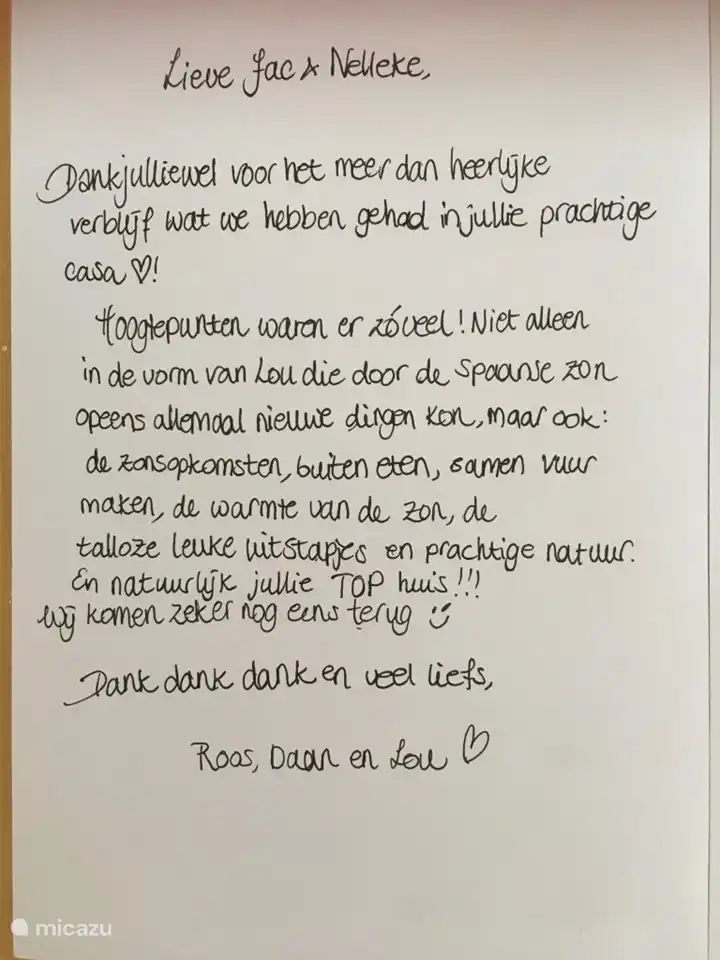 Lieve Jac & Nelleke,
Dankjulliewel voor het meer dan heerlijke
verblijf wat we hebben gehad in jullie prachtige
casa ♡!
Hoogtepunten waren er zóveel! Niet alleen
in de vorm van Lou die door de Spaanse zon
opeens allemaal nieuwe dingen kon, maar ook:
de zonsopkomsten, buiten eten, samen vuur
maken, de warmte van de zon, de
talloze leuke uitstapjes en prachtige natuur.
En natuurlijk jullie TOP huis!!!
Wij komen zeker nog eens terug ☺
Dank dank dank en veel liefs,
Roos, Daan en Lou ♡
micazu